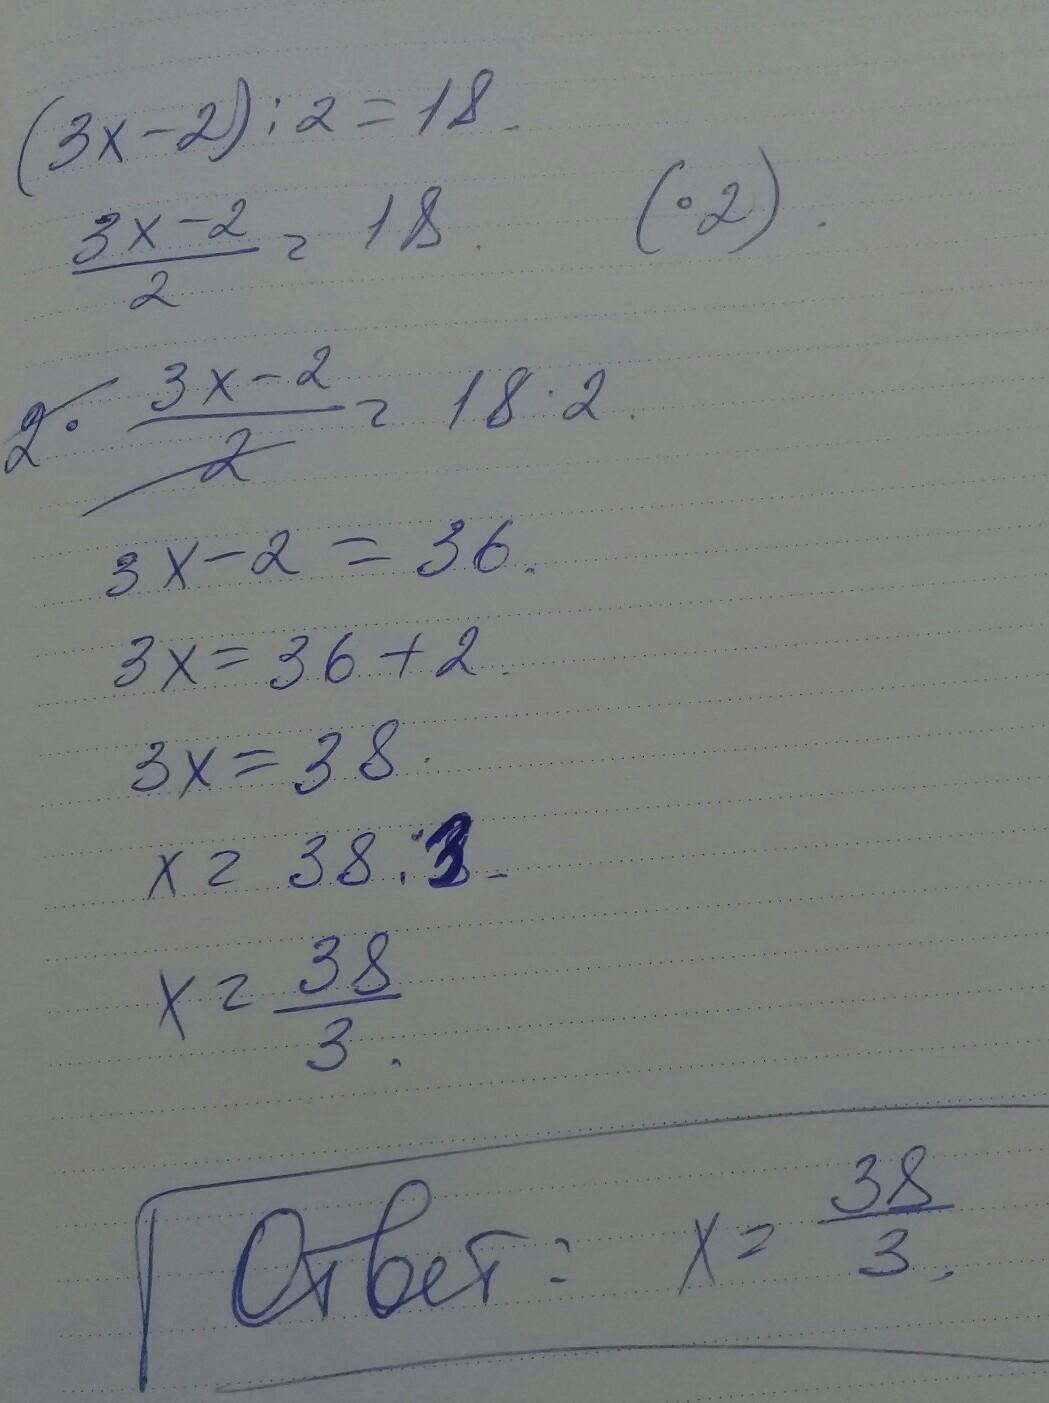 (3x-2):2=18.
3x-2/2 = 18. (·2).
2· 3x-2/2 = 18·2.
3x-2=36.
3x=36+2.
3x=38.
x=38:3.
x=38/3.
Ответ: x=38/3.